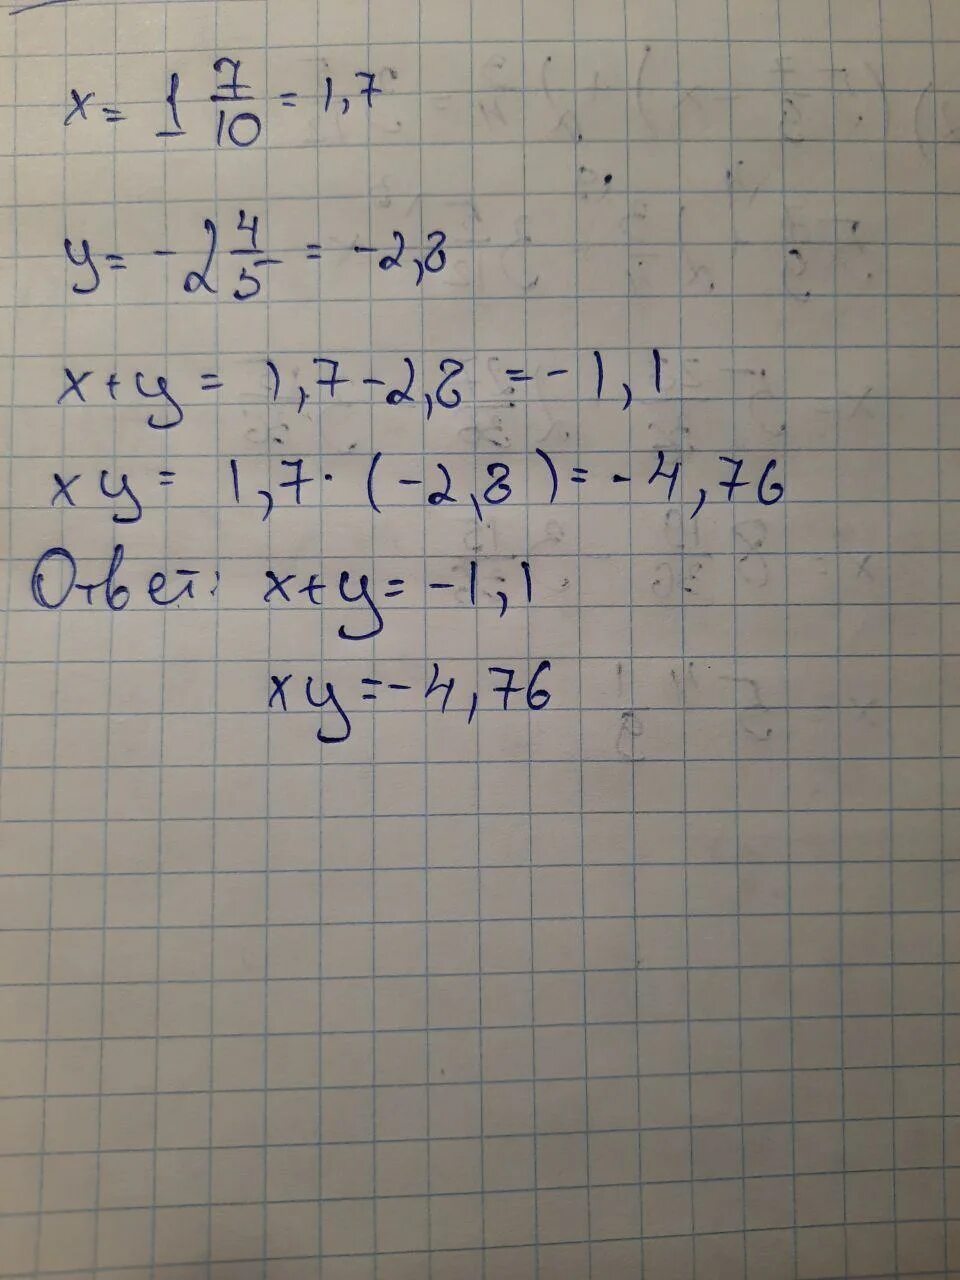 x = 1 7/10 = 1,7
y = -2 4/5 = -2,8
x+y = 1,7-2,8 = -1,1
xy = 1,7·(-2,8)= -4,76
Ответ: x+y = -1,1
xy = -4,76